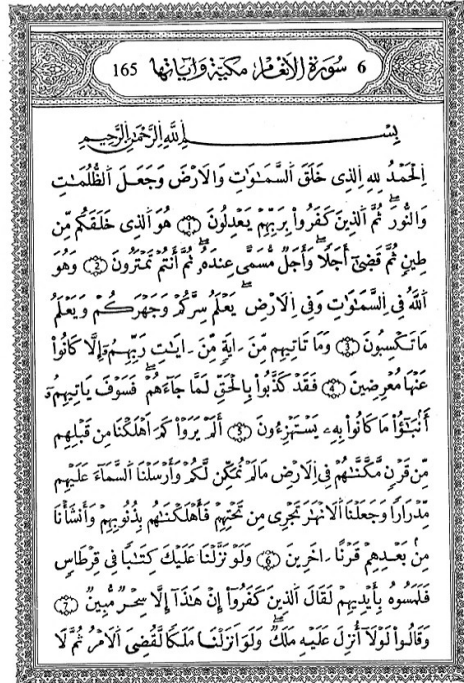 6 سورة الانعام مكية وءاياتها 165
بِسْمِ اِللَّهِ اِلرَّحْمَٰنِ اِلرَّحِيمِ
اِلْحَمْدُ لِلهِ اِلذِى خَلَقَ اَلسَّمَٰوَٰتِ وَالَارْضَ وَجَعَلَ اَلظُّلُمَٰتِ
وَالنُّورَ ثُمَّ اَلذِينَ كَفَرُواْ بِرَبِّهِمْ يَعْدِلُونَ ١ هُوَ اَلذِى خَلَقَكُم مِّن
طِينٍ ثُمَّ قَضَىٰ أَجَلًا وَأَجَلٌ مُّسَمًّى عِندَهُۥ ثُمَّ أَنتُمْ تَمْتَرُونَ ٢ وَهُوَ
اَللَّهُ فِى اِلسَّمَٰوَٰتِ وَفِى اِلَارْضِ يَعْلَمُ سِرَّكُمْ وَجَهْرَكُمْ وَيَعْلَمُ
مَا تَكْسِبُونَ ٣ وَمَا تَاتِيهِم مِّنَ ـايَةٍ مِّنَ ـايَٰتِ رَبِّهِمُۥٓ إِلَّا كَانُواْ
عَنْهَا مُعْرِضِينَ ٤ فَقَدْ كَذَّبُواْ بِالْحَقِّ لَمَّا جَآءَهُمْ فَسَوْفَ يَاتِيهِمُۥٓ
أَنۢبَٰٓؤُاْ مَا كَانُواْ بِهِۦ يَسْتَهْزِءُونَ ٥ أَلَمْ يَرَوْاْ كَمَ اَهْلَكْنَا مِن قَبْلِهِم
مِّن قَرْنٍ مَّكَّنَّٰهُمْ فِى اِلَارْضِ مَا لَمْ نُمَكِّن لَّكُمْ وَأَرْسَلْنَا اَلسَّمَآءَ عَلَيْهِم
مِّدْرَارًا وَجَعَلْنَا اَلَانْهَٰرَ تَجْرِى مِن تَحْتِهِمْ فَأَهْلَكْنَٰهُم بِذُنُوبِهِمْ وَأَنشَأْنَا
مِنۢ بَعْدِهِمْ قَرْنًا ـاخَرِينَ ٦ وَلَوْ نَزَّلْنَا عَلَيْكَ كِتَٰبًا فِى قِرْطَاسٍ
فَلَمَسُوهُ بِأَيْدِيهِمْ لَقَالَ اَلذِينَ كَفَرُواْ إِنْ هَٰذَا إِلَّا سِحْرٌ مُّبِينٌ ٧
وَقَالُواْ لَوْلَا أُنزِلَ عَلَيْهِ مَلَكٌ وَلَوَ اَنزَلْنَا مَلَكًا لَّقُضِىَ اَلَامْرُ ثُمَّ لَا